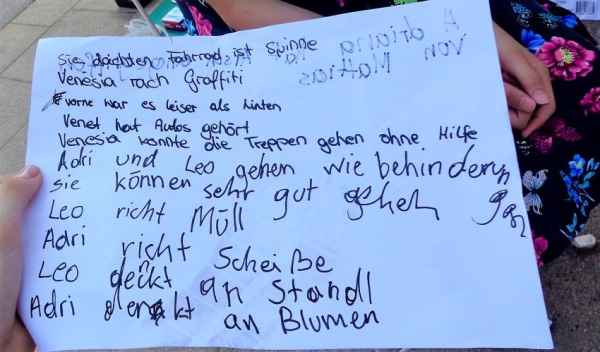 Sie dachten Fahrrad ist Spinne
Venesia rach Graffiti
vorne war es leiser als hinten
Venet hat Autos gehört
Venesia konnte die Treppen gehen ohne Hilfe
Adri und Leo gehen wie behindern
sie können sehr gut gehen
Leo richt Müll
Adri richt Scheiße
Leo deckt an Standl
Adri denkt an Blumen
Adriana
von Mattias